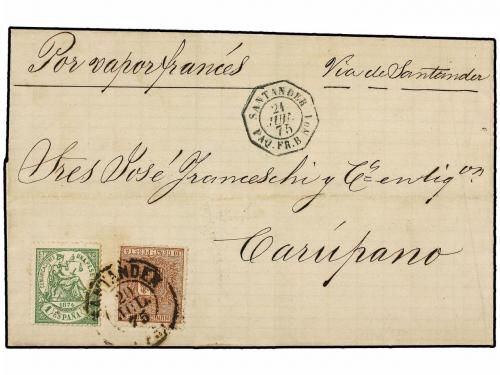 Por vapor francés
Via de Santander
SANTANDER
21
JUIL.
75
PAQ. FR. B No 1
Sres José Franceschi y Ca. en liq.on
Carúpano
1874
ESPAÑA
SANTANDER
20
JUL
75